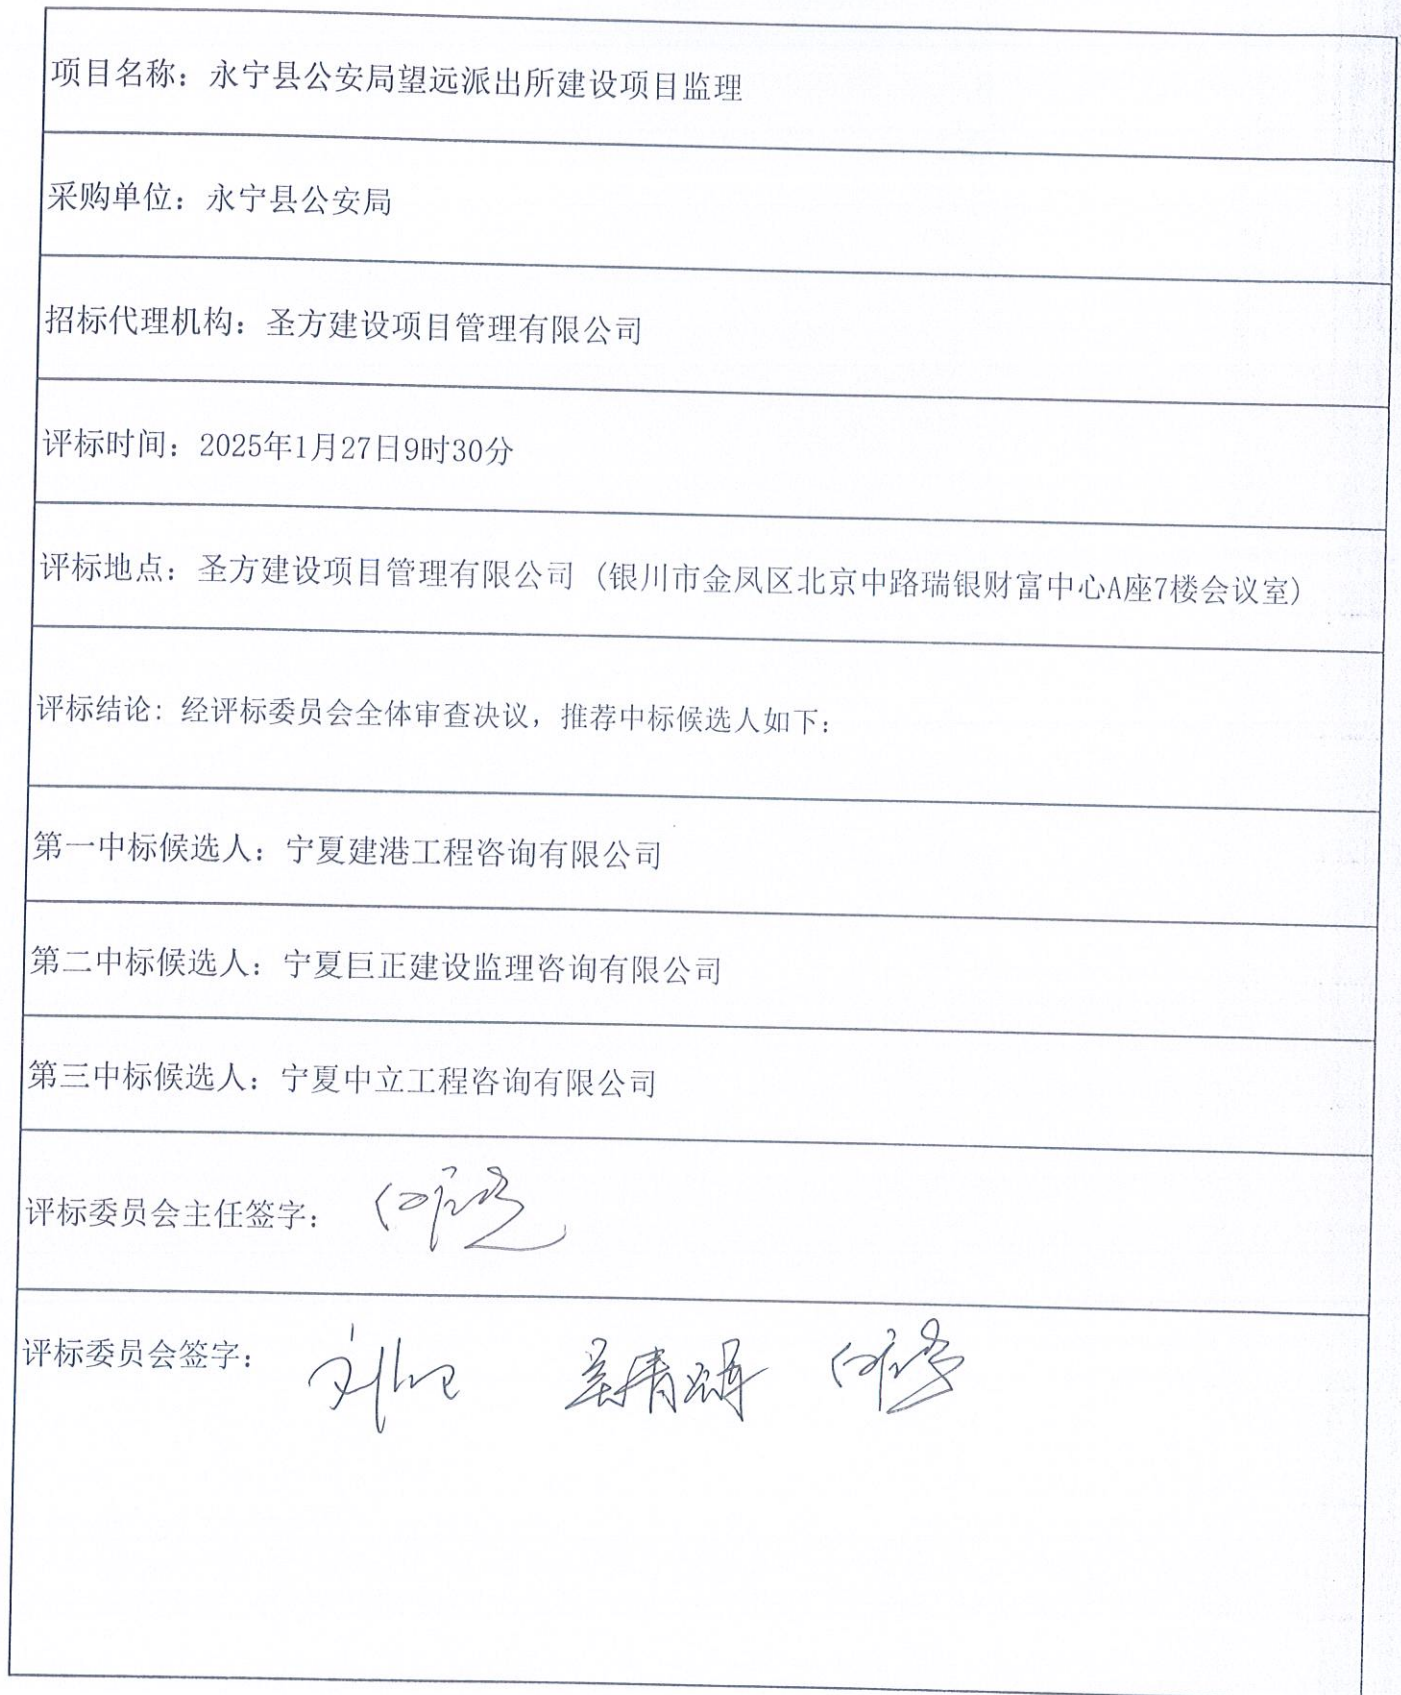 项目名称：永宁县公安局望远派出所建设项目监理
采购单位：永宁县公安局
招标代理机构：圣方建设项目管理有限公司
评标时间：2025年1月27日9时30分
评标地点：圣方建设项目管理有限公司（银川市金凤区北京中路瑞银财富中心A座7楼会议室）
评标结论：经评标委员会全体审查决议，推荐中标候选人如下：
第一中标候选人：宁夏建港工程咨询有限公司
第二中标候选人：宁夏巨正建设监理咨询有限公司
第三中标候选人：宁夏中立工程咨询有限公司
评标委员会主任签字：
评标委员会签字：